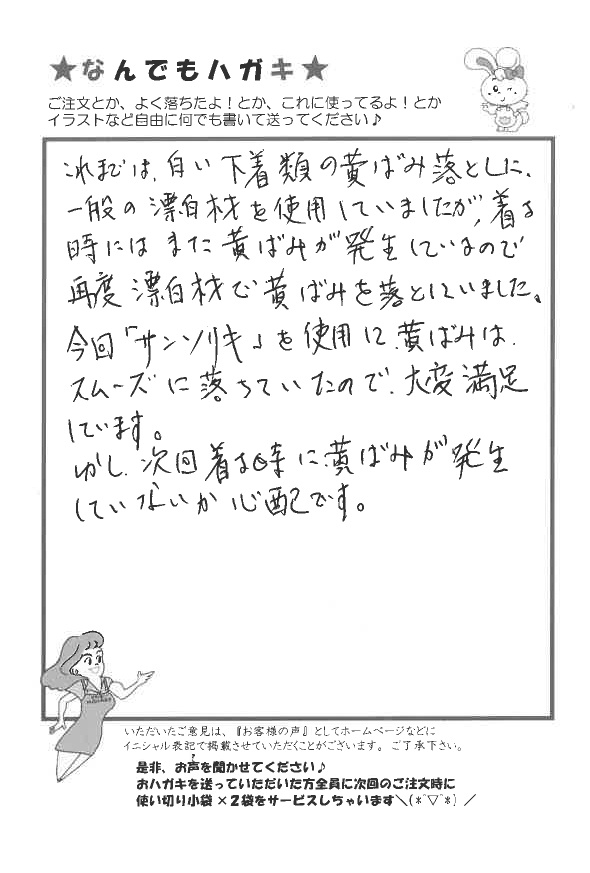 ★なんでもハガキ★
ご注文とか、よく落ちたよ！とか、これに使ってるよ！とか
イラストなど自由に何でも書いて送ってください♪
これまでは、白い下着類の黄ばみ落としに、
一般の漂白材を使用していましたが、着る
時にはまた黄ばみが発生しているので
再度漂白材で黄ばみを落としていました。
今回「サンソリキ」を使用して、黄ばみは、
スムーズに落ちていたので、大変満足
しています。
しかし、次回着る時に、黄ばみが発生
していないか心配です。
いただいたご意見は、『お客様の声』としてホームページなどに
イニシャル表記で掲載させていただくことがございます。ご了承下さい。
是非、お声を聞かせてください♪
おハガキを送っていただいた方全員に次回のご注文時に
使い切り小袋×２袋をサービスしちゃいます＼(*^▽^*)／